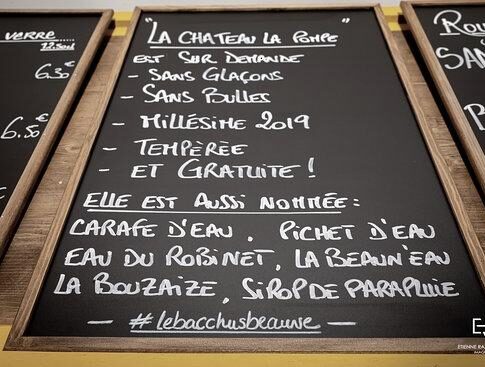 VERRE
12.5cl
6.30€
6.50€
"LA CHATEAU LA POMPE"
EST SUR DEMANDE
- SANS GLAÇONS
- SANS BULLES
- MILLÉSIME 2019
- TEMPÈRÉE
- ET GRATUITE !
ELLE EST AUSSI NOMMÉE :
CARAFE D'EAU, PICHET D'EAU
EAU DU ROBINET, LA BEAUN'EAU
LA BOUZAIZE, SIROP DE PARAPLUIE
— #lebacchusbeaune —